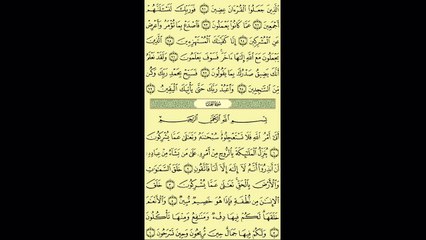 الَّذِينَ جَعَلُوا الْقُرْءَانَ عِضِينَ ﴿٩١﴾ فَوَرَبِّكَ لَنَسْـَٔلَنَّهُمْ
أَجْمَعِينَ ﴿٩٢﴾ عَمَّا كَانُوا يَعْمَلُونَ ﴿٩٣﴾ فَاصْدَعْ بِمَا تُؤْمَرُ وَأَعْرِضْ
عَنِ الْمُشْرِكِينَ ﴿٩٤﴾ إِنَّا كَفَيْنَاكَ الْمُسْتَهْزِءِينَ ﴿٩٥﴾ الَّذِينَ
يَجْعَلُونَ مَعَ اللَّهِ إِلَٰهًا ءَاخَرَ فَسَوْفَ يَعْلَمُونَ ﴿٩٦﴾ وَلَقَدْ نَعْلَمُ
أَنَّكَ يَضِيقُ صَدْرُكَ بِمَا يَقُولُونَ ﴿٩٧﴾ فَسَبِّحْ بِحَمْدِ رَبِّكَ وَكُن
مِّنَ السَّاجِدِينَ ﴿٩٨﴾ وَاعْبُدْ رَبَّكَ حَتَّىٰ يَأْتِيَكَ الْيَقِينُ ﴿٩٩﴾
سُورَةُ النَّحْلِ
بِسْمِ اللَّهِ الرَّحْمَٰنِ الرَّحِيمِ
أَتَىٰ أَمْرُ اللَّهِ فَلَا تَسْتَعْجِلُوهُ سُبْحَانَهُ وَتَعَالَىٰ عَمَّا يُشْرِكُونَ
﴿١﴾ يُنَزِّلُ الْمَلَائِكَةَ بِالرُّوحِ مِنْ أَمْرِهِ عَلَىٰ مَن يَشَاءُ مِنْ عِبَادِهِ
أَنْ أَنذِرُوا أَنَّهُ لَا إِلَٰهَ إِلَّا أَنَا فَاتَّقُونِ ﴿٢﴾ خَلَقَ السَّمَاوَاتِ
وَالْأَرْضَ بِالْحَقِّ تَعَالَىٰ عَمَّا يُشْرِكُونَ ﴿٣﴾ خَلَقَ
الْإِنسَانَ مِن نُّطْفَةٍ فَإِذَا هُوَ خَصِيمٌ مُّبِينٌ ﴿٤﴾ وَالْأَنْعَامَ
خَلَقَهَا لَكُمْ فِيهَا دِفْءٌ وَمَنَافِعُ وَمِنْهَا تَأْكُلُونَ
﴿٥﴾ وَلَكُمْ فِيهَا جَمَالٌ حِينَ تُرِيحُونَ وَحِينَ تَسْرَحُونَ ﴿٦﴾